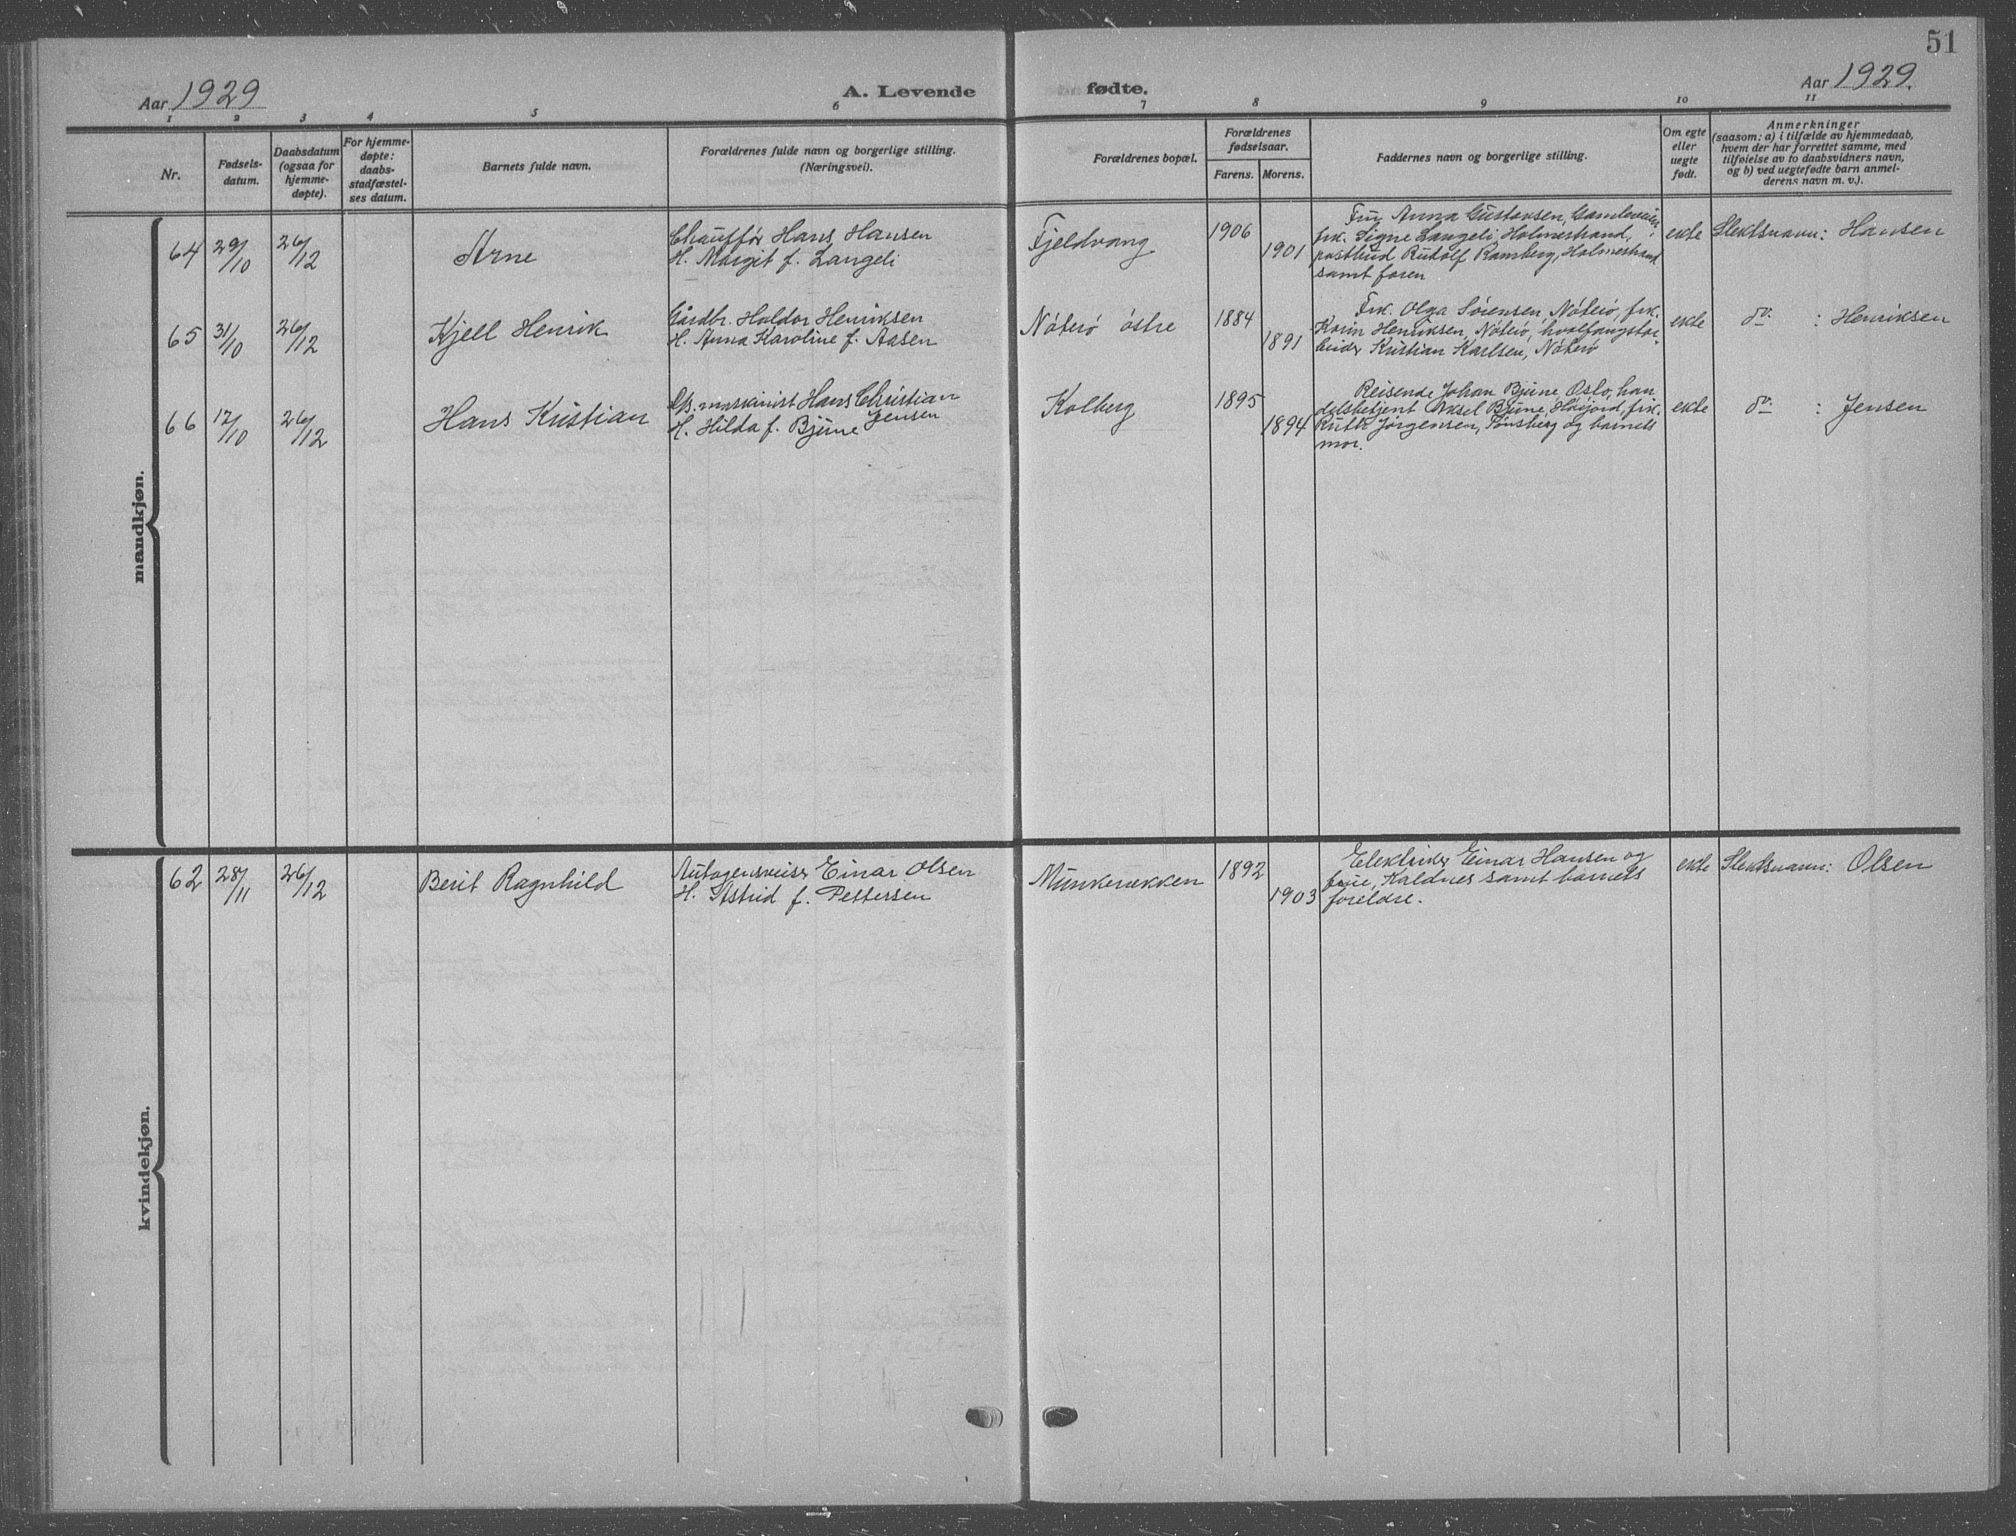 51
Aar 1929
A. Levende fødte.
Aar 1929.
1 2 3 4 5 6 7 8 9 10 11
Nr.
Fødsels-
datum.
Daabsdatum
(ogsaa for
hjemme-
døpte).
For hjemme-
døpte:
daabs-
stadfæstel-
ses datum.
Barnets fulde navn.
Forældrenes fulde navn og borgerlige stilling.
(Næringsvei).
Forældrenes bopæl.
Forældrenes
fødselsaar.
Farens. Morens.
Faddernes navn og borgerlige stilling.
Om egte
eller
uegte
født.
Anmerkninger
(saasom: a) i tilfælde av hjemmedaab,
hvem der har forrettet samme, med
tilføielse av to daabsvidners navn,
og b) ved uegtefødte barn anmel-
derens navn m. v.).
mandkjøn.
64 29/10 26/12 Arne
Chauffør Hans Hansen
H. Margit f. Langeli
Fjeldvang 1906 1901
Fru Anna Gustavsen,
frk. Signe Langeli Holmestrand,
postbud Rudolf Ramberg, Holmestrand
samt faren
ekte Slektsnavn: Hansen
65 31/10 26/12 Kjell Henrik
Gårdbr. Haldor Henriksen
H. Anna Karoline f. Aasen
Nøterø østre 1884 1891
Frk. Olga Sørensen, Nøterø, frk.
Karin Henriksen, Nøterø, hvalfangstar-
beider Kristian Karlsen, Nøterø
ekte do : Henriksen
66 17/10 26/12 Hans Kristian
maskinist Hans Christian
Jensen
H. Hilda f. Bjune
Kolberg 1895 1894
Reisende Johan Bjune Oslo, han-
delsbetjent Aksel Bjune, Høijord, frk.
Ruth Jørgensen, Tønsberg og barnets
mor.
ekte do : Jensen
kvindekjøn.
62 28/11 26/12 Berit Ragnhild
Autogensveiser Einar Olsen
H. Astrid f. Pettersen
Munkerekken 1892 1903
Elektriker Einar Hansen og
frue, Kaldnes samt barnets
foreldre.
ekte Slektsnavn: Olsen